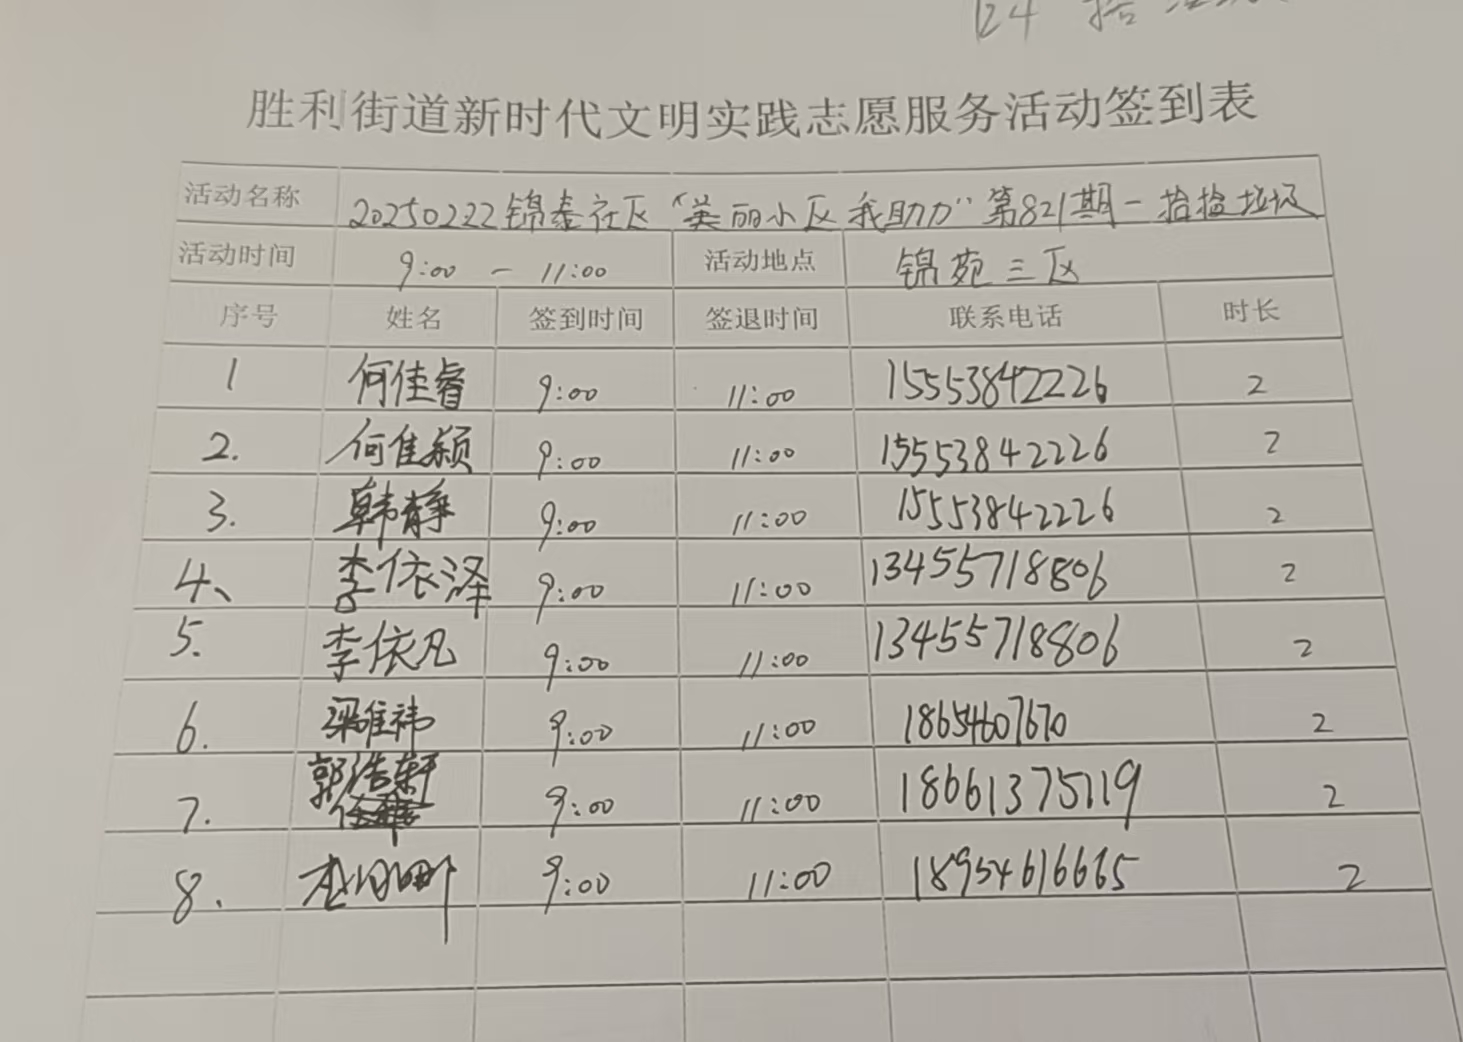 124 拾
胜利街道新时代文明实践志愿服务活动签到表
活动名称 20250222锦泰社区“美丽小区 我助力”第821期-拾捡垃圾
活动时间 9:00 - 11:00 活动地点 锦苑三区
序号 姓名 签到时间 签退时间 联系电话 时长
1 何佳睿 9:00 11:00 15553842226 2
2. 何佳颖 9:00 11:00 15553842226 2
3. 韩静 9:00 11:00 15553842226 2
4、 李依泽 9:00 11:00 13455718806 2
5. 李依凡 9:00 11:00 13455718806 2
6. 梁维祎 9:00 11:00 18654607670 2
7. 郭浩轩 9:00 11:00 18661375119 2
8. 9:00 11:00 18954616665 2